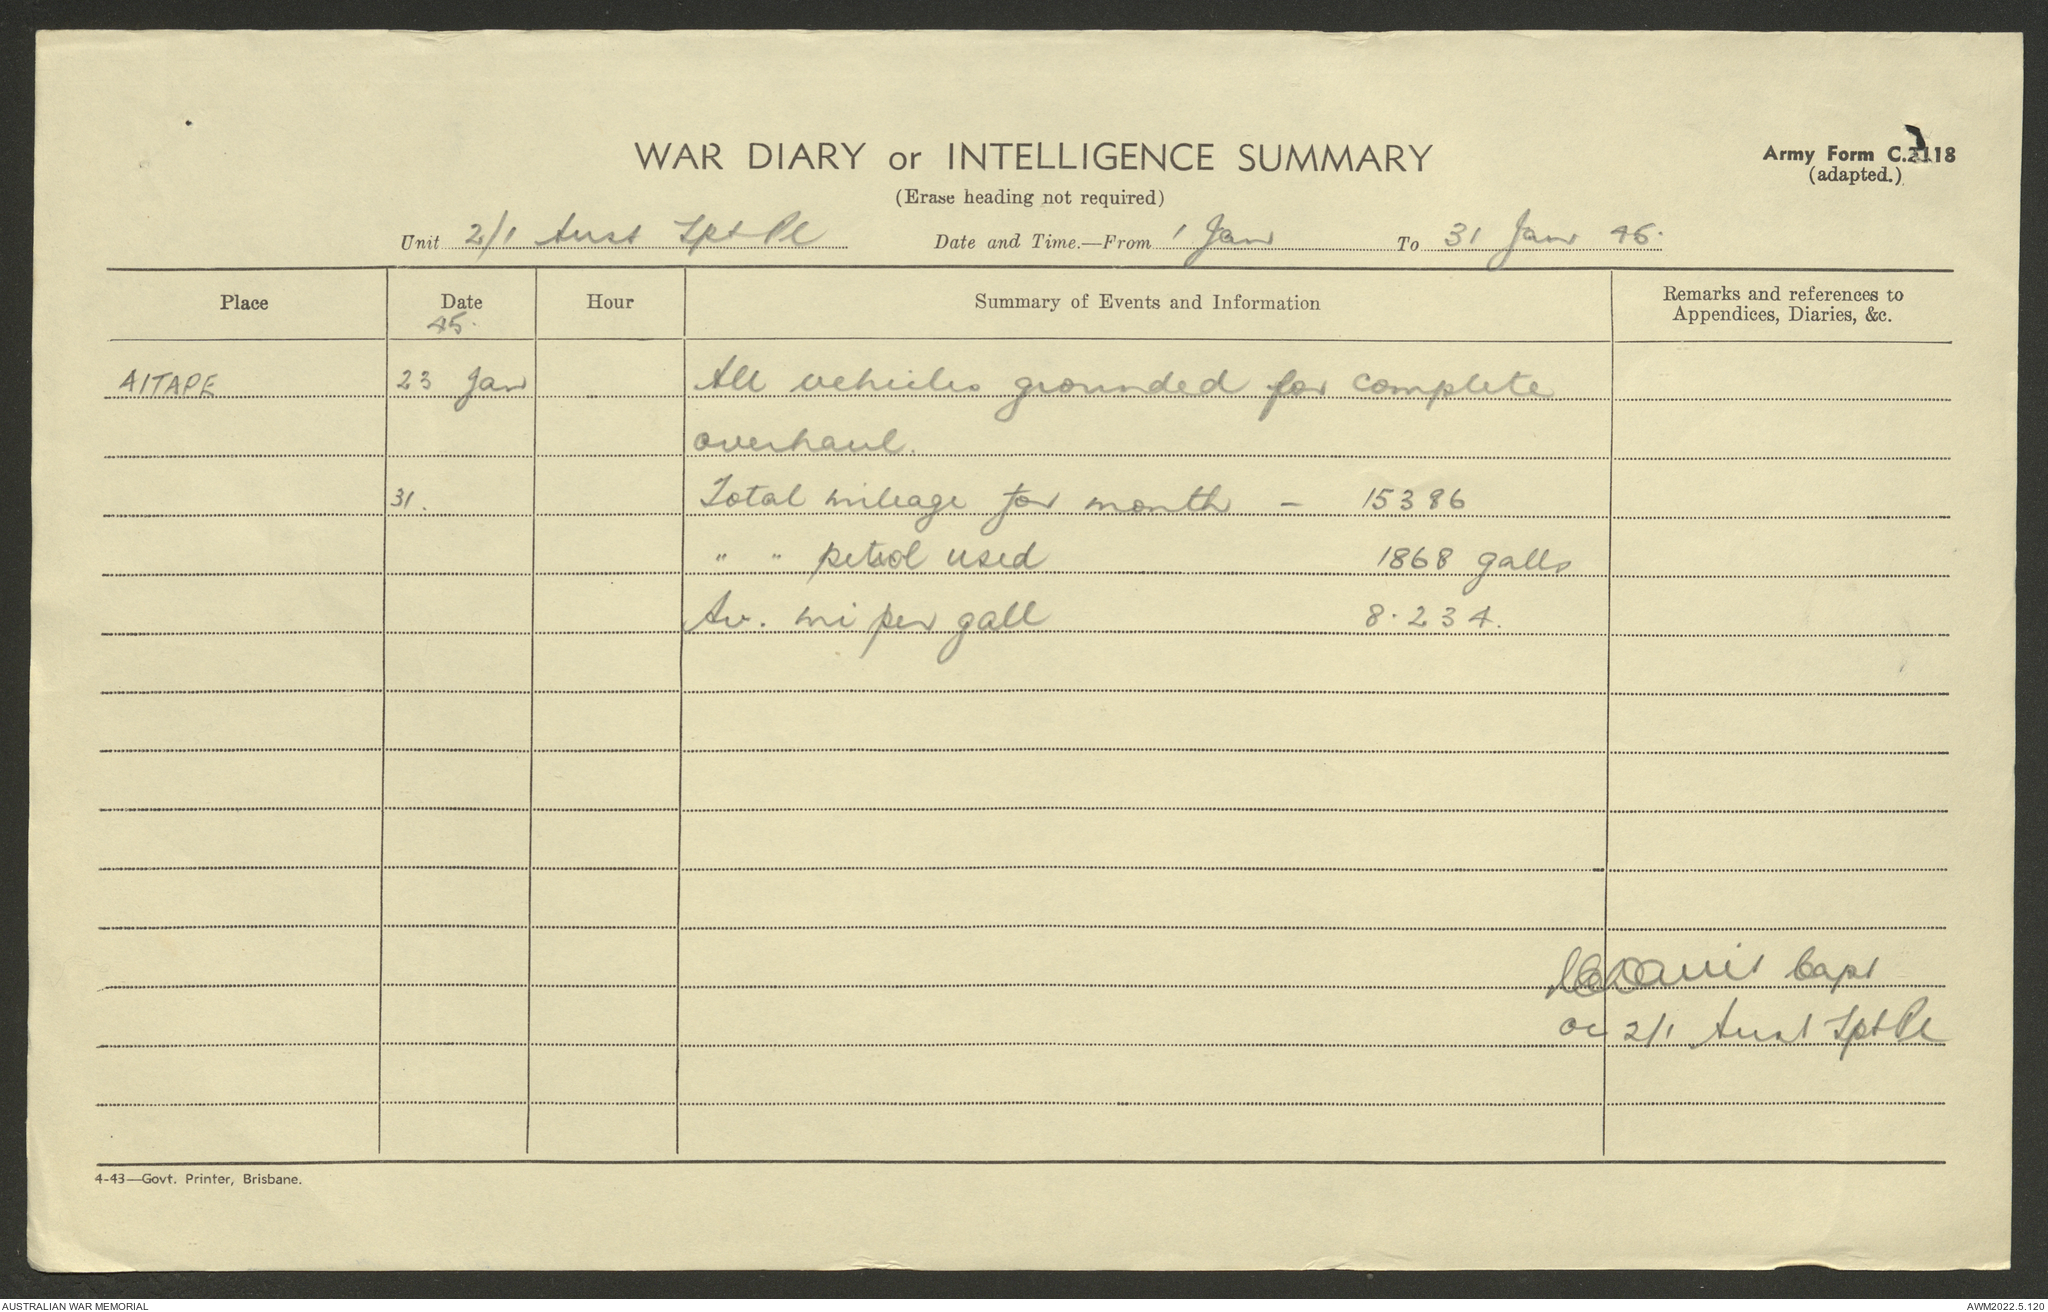 WAR DIARY or INTELLIGENCE SUMMARY
(Erase heading not required)
Army Form C.2118
(adapted.)
Unit 2/1 Aust Tpt Pl Date and Time.—From 1 Jan To 31 Jan 45.
Place Date Hour Summary of Events and Information Remarks and references to
Appendices, Diaries, &c.
45.
AITAPE 23 Jan All vehicles grounded for complete
overhaul.
31. Total mileage for month – 15386
" " petrol used 1868 galls
Av. mi per gall 8.234.
Davis Capt
OC 2/1 Aust Tpt Pl
4-43—Govt. Printer, Brisbane.
AUSTRALIAN WAR MEMORIAL AWM2022.5.120